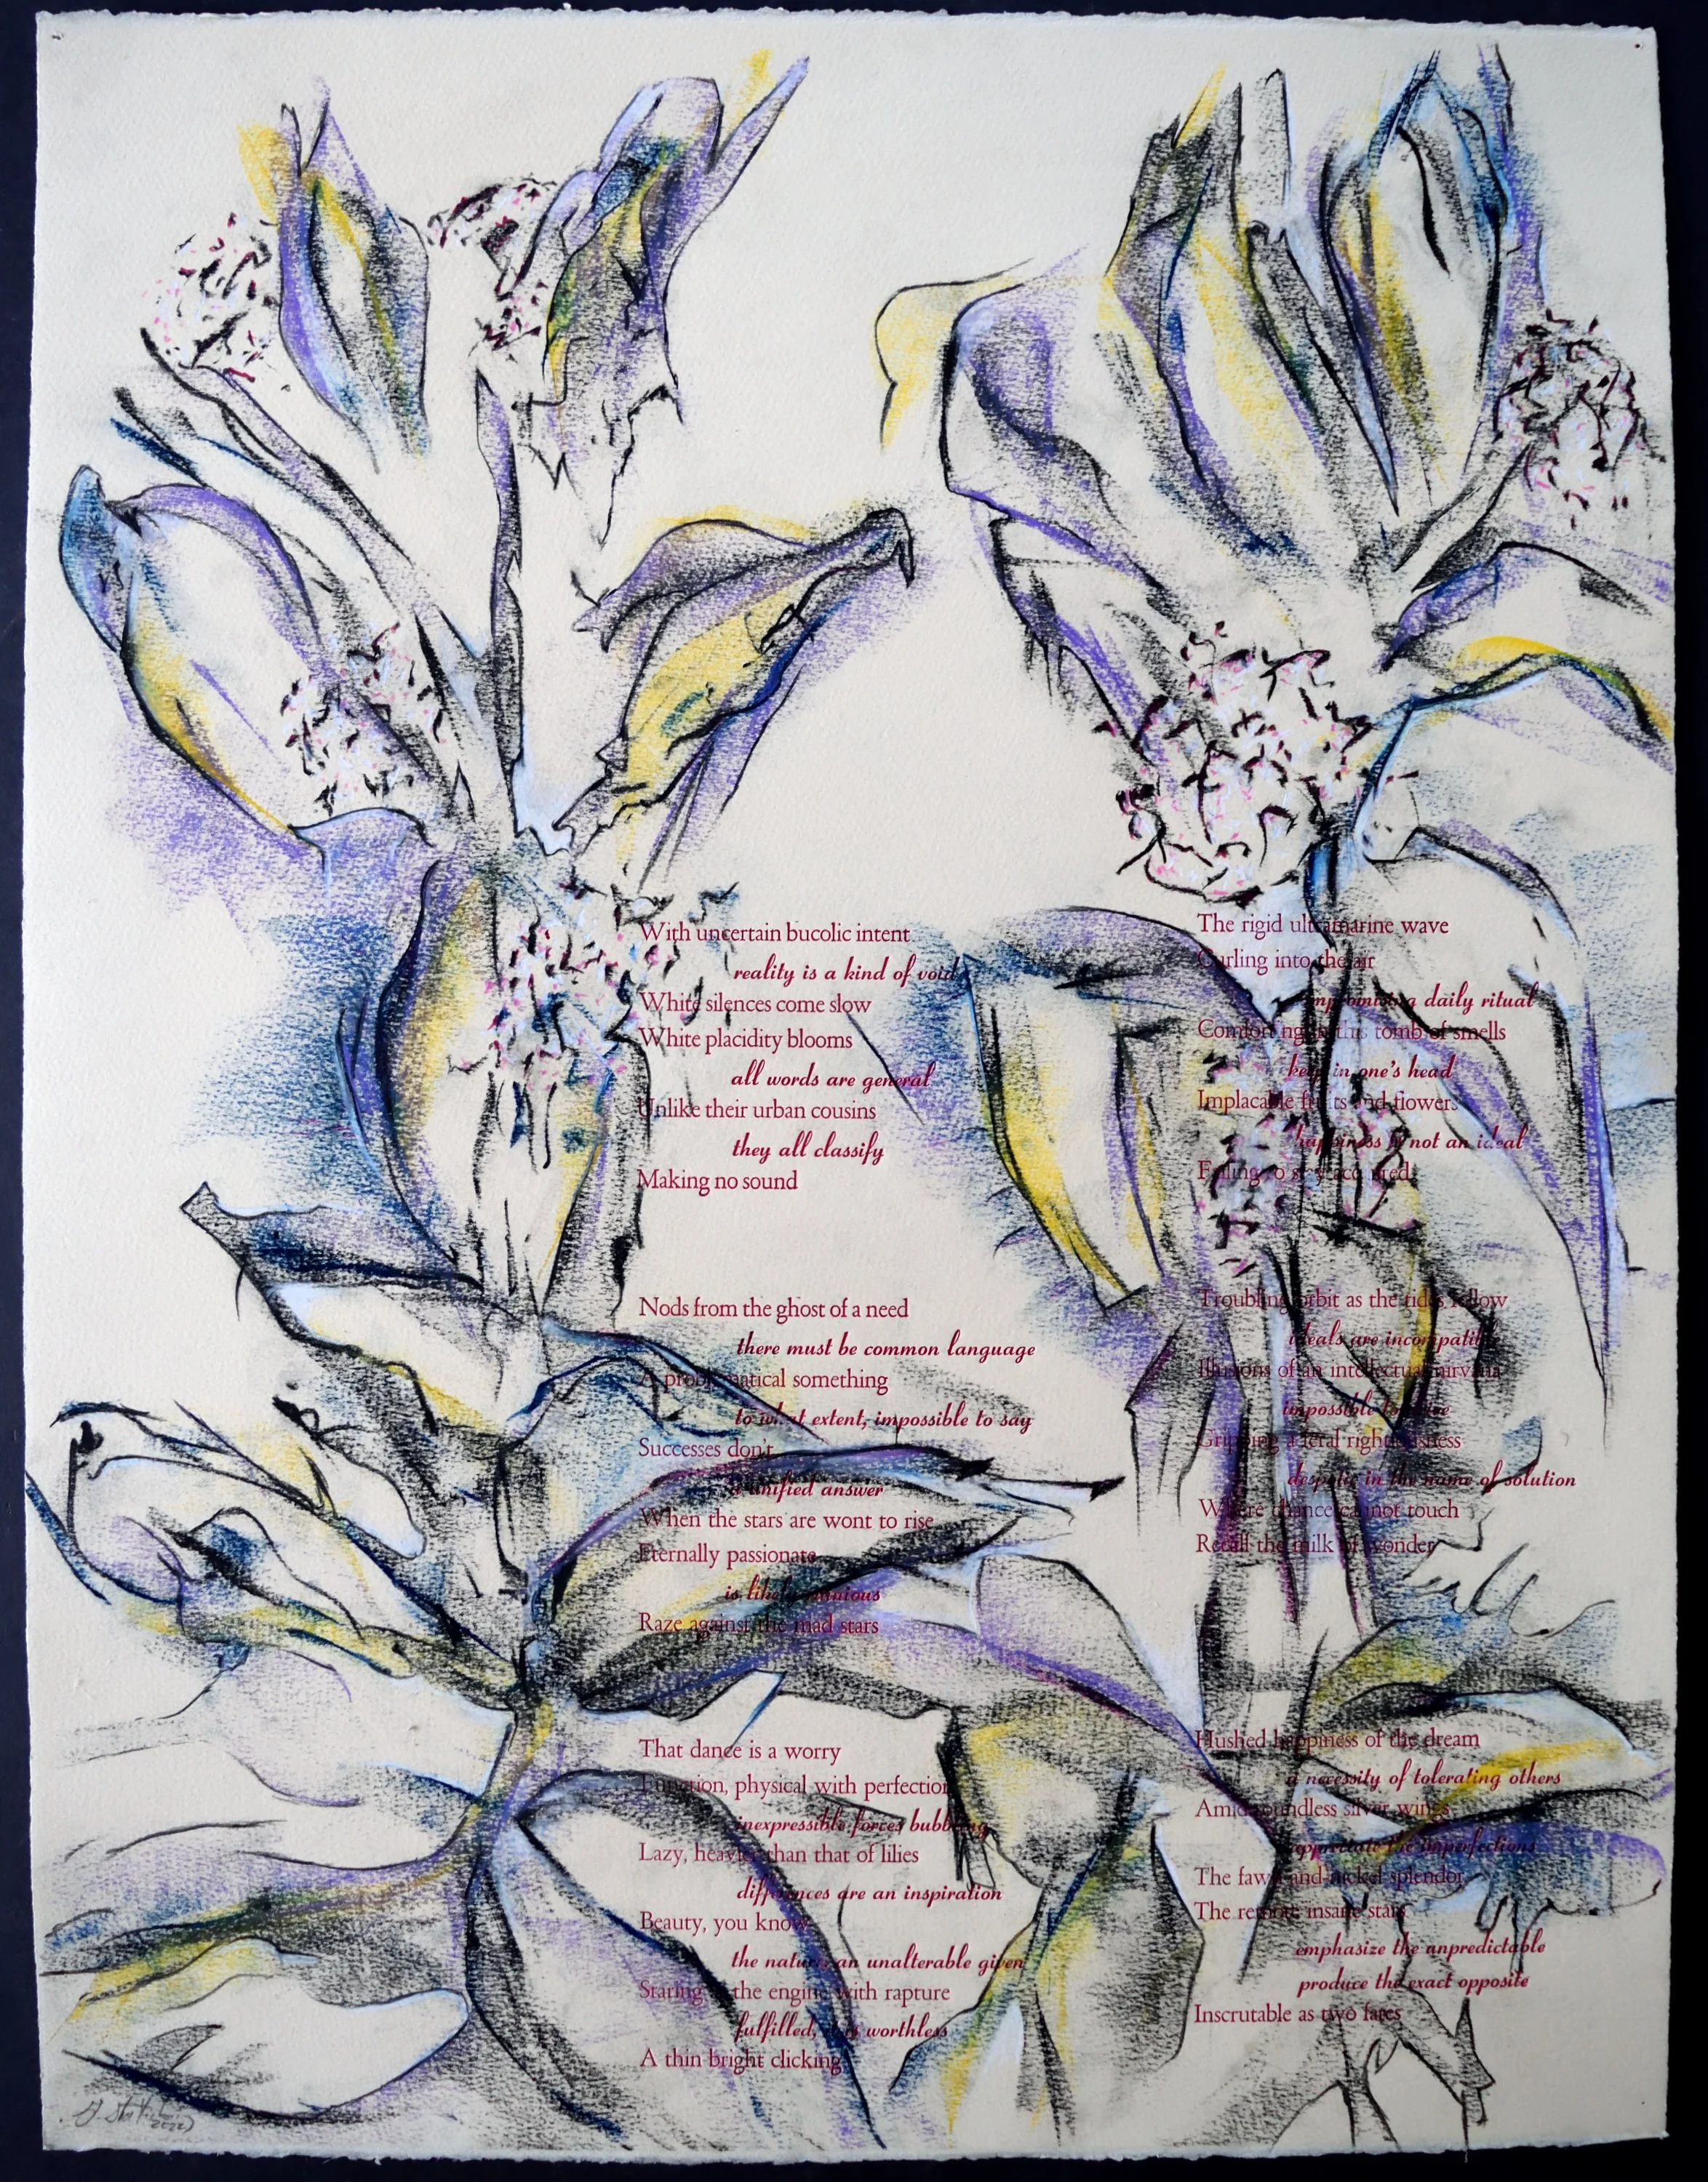 With uncertain bucolic intent
reality is a kind of void
White silences come slow
White placidity blooms
all words are general
Unlike their urban cousins
they all classify
Making no sound
Nods from the ghost of a need
there must be common language
A problematical something
to what extent, impossible to say
Successes don't
a unified answer
When the stars are wont to rise
Eternally passionate
is likely ruinous
Raze against the mad stars
That dance is a worry
Function, physical with perfection
inexpressible forces bubbling
Lazy, heavier than that of lilies
differences are an inspiration
Beauty, you know
the nature an unalterable given
Staring at the engine with rapture
fulfilled, it is worthless
A thin bright clicking
The rigid ultramarine wave
Curling into the air
a daily ritual
Comforting in this tomb of smells
keep in one's head
Implacable fruits and flowers
happiness is not an ideal
Troubling orbit as the tides follow
ideals are incompatible
Illusions of an intellectual nirvana
impossible to
Gripping a feral righteousness
despotic in the name of solution
Where chance cannot touch
Recall the milk of wonder
Hushed happiness of the dream
a necessity of tolerating others
Amid soundless silver wings
appreciate the imperfections
The fawn-and-nickel splendor
The remote insane stars
emphasize the unpredictable
produce the exact opposite
Inscrutable as two fates